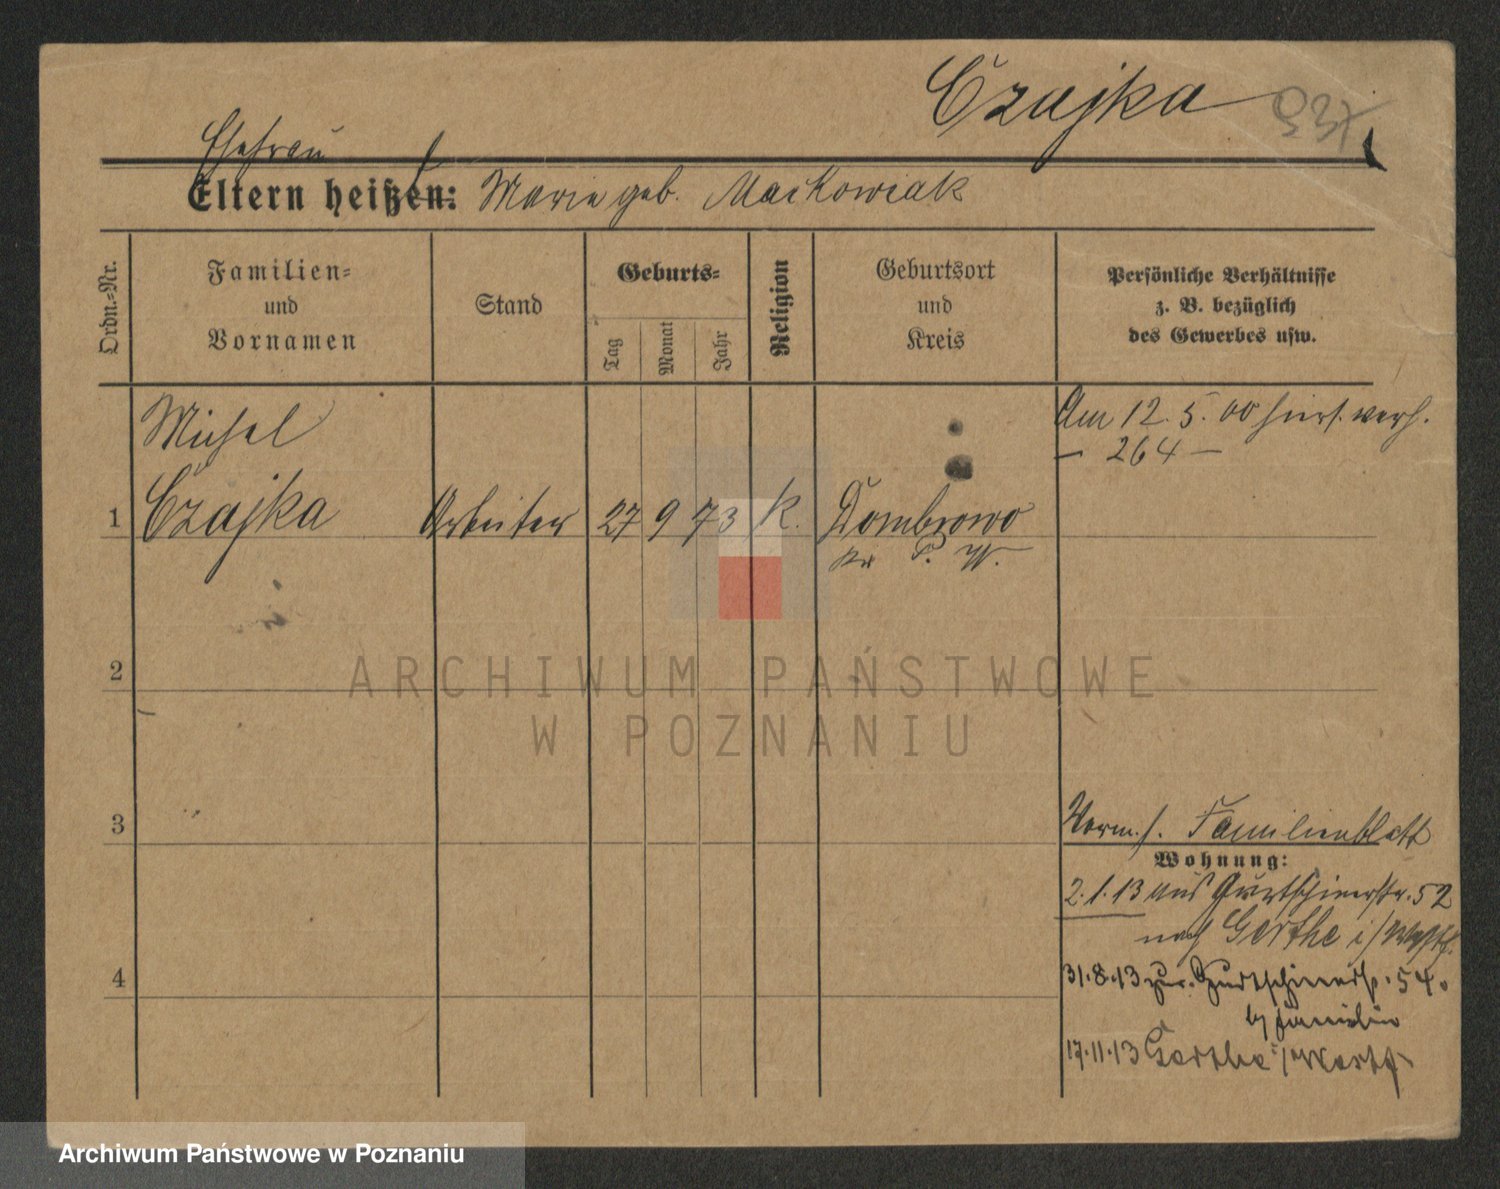 Czajka
Ehefrau
Eltern heißen: Marie geb. Maćkowiak
Ordn.-Nr.
Familien-
und
Vornamen
Stand
Geburts-
Tag
Monat
Jahr
Religion
Geburtsort
und
Kreis
Persönliche Verhältnisse
z. B. bezüglich
des Gewerbes usw.
Am 12. 5. 00 hiers. verh.
— 264 —
Michel
1 Czajka Arbeiter 27 9 73 K. Dombrowo
Kr P. W.
2
3
Verm. s. Familienblatt
Wohnung:
2.1.13 aus Gurtschinerstr. 52
nach Gerthe i/Westf.
4
31.8.13 zur. Gurtschinerstr. 54.
b/ Familie
17.11.13 Gerthe i/Westf
ARCHIWUM PAŃSTWOWE
W POZNANIU
Archiwum Państwowe w Poznaniu